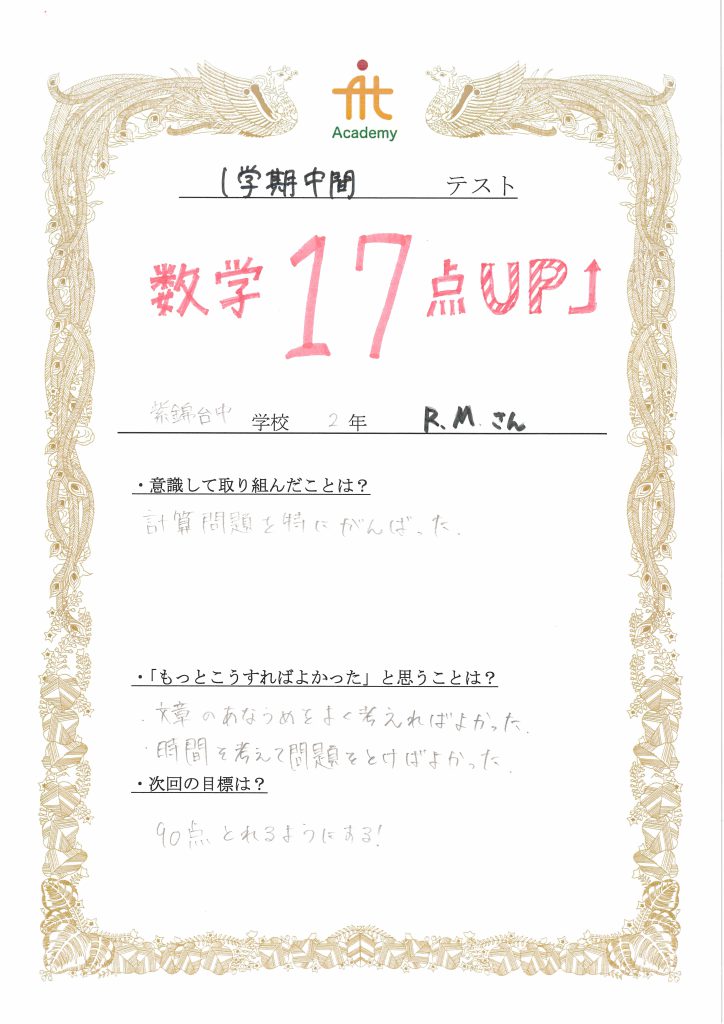 fit
Academy
1学期中間 テスト
数学 17 点UP↑
紫錦台中 学校 2 年 R.M.さん
・意識して取り組んだことは？
計算問題を特にがんばった.
・「もっとこうすればよかった」と思うことは？
・文章のあなうめをよく考えればよかった.
・時間を考えて問題をとけばよかった.
・次回の目標は？
90点とれるようにする!